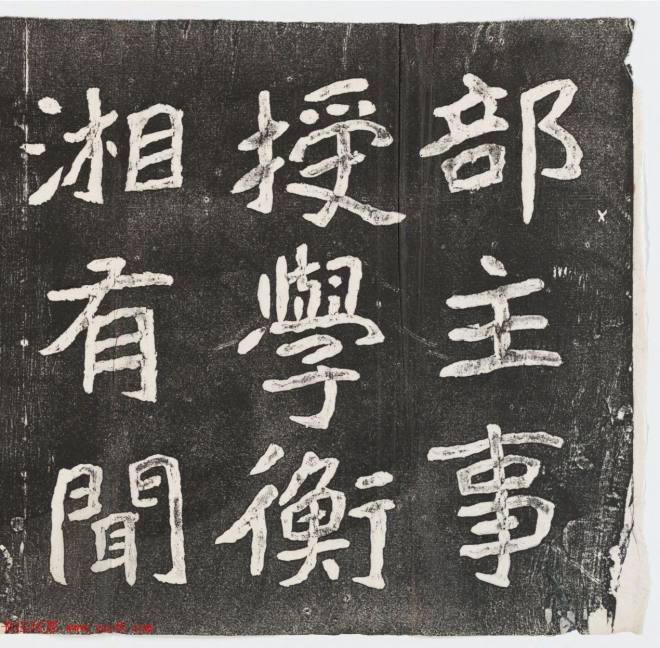 部主事
授學衡
湘有聞